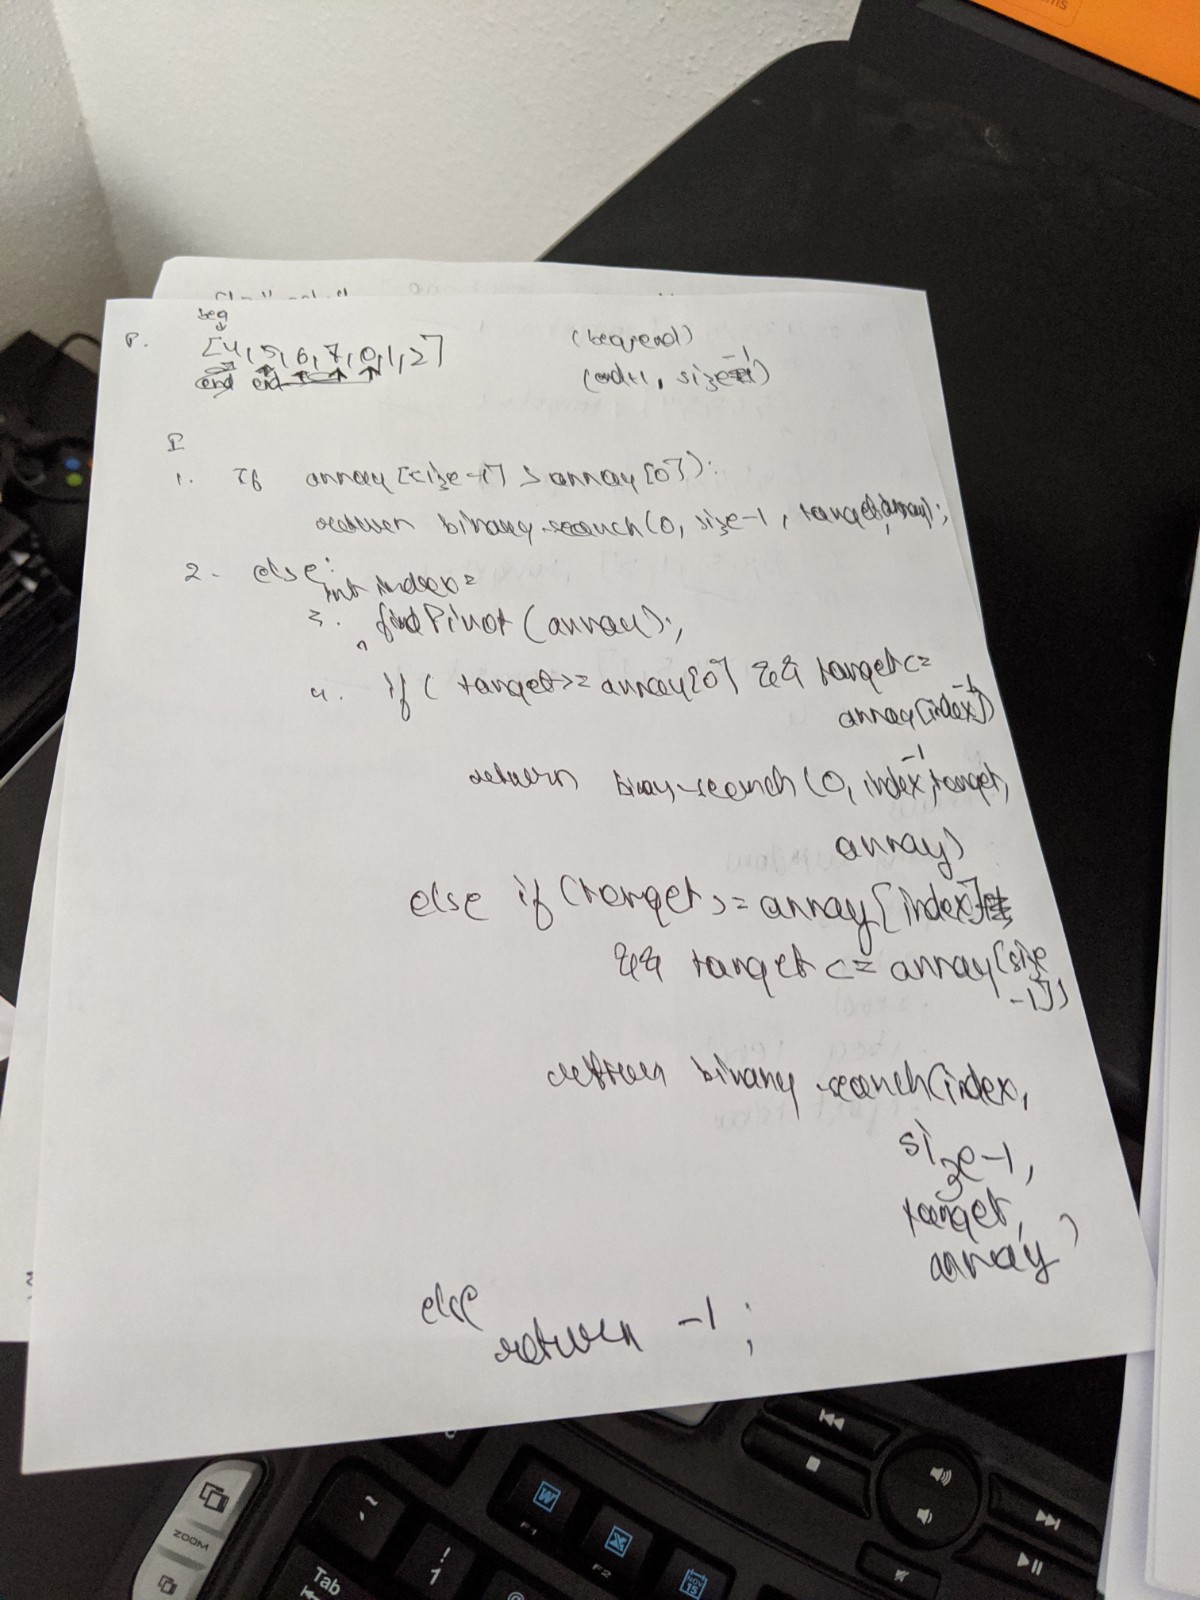 beg
P. [4, 5, 6, 7, 0, 1, 2]
end end
(beg, end)
(end+1, size-1)
I
1. If array[size-1] > array[0]):
return binary-search(0, size-1, target, array);
2. else:
int index =
3. findPivot(array);
4. if( target >= array[0] && target <=
array[index-1])
return binary-search(0, index-1, target,
array)
else if (target >= array[index]
&& target <= array[size
-1])
return binary-search(index,
size-1,
target,
array)
else
return -1;
ZOOM
~
`
!
1
Tab
W
F1
X
F2
NOV
15